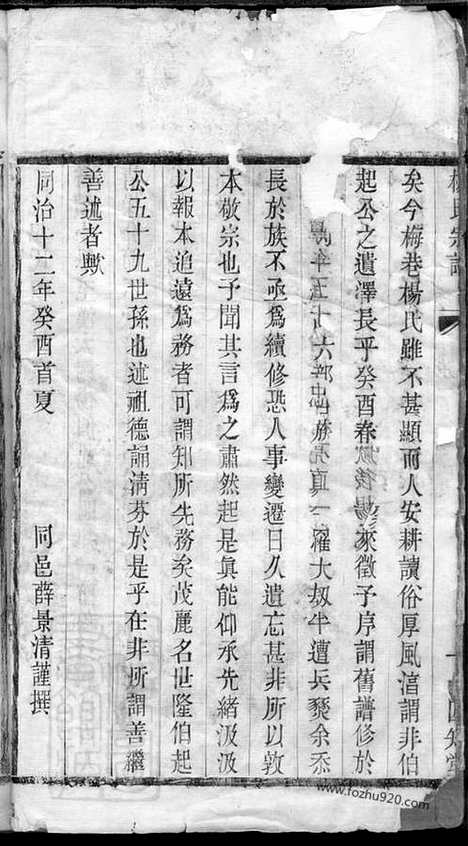 楊氏宗譜
矣今梅巷楊氏雖不甚顯而人安耕讀俗厚風湻謂非伯
起公之遺澤長乎癸酉春 後楊 來徵予序謂舊譜修於
年五十六 真 罹大刼半遭兵燹余忝
長於族不亟爲續修恐人事變遷日久遺忘甚非所以敦
本敬宗也予聞其言爲之肅然起是眞能仰承先緒汲汲
以報本追遠爲務者可謂知所先務矣茂麗名世隆伯起
公五十九世孫也述祖德誦淸芬於是乎在非所謂善繼
善述者歟
同治十二年癸酉首夏　同邑薛景清謹撰
www.fozhu920.com